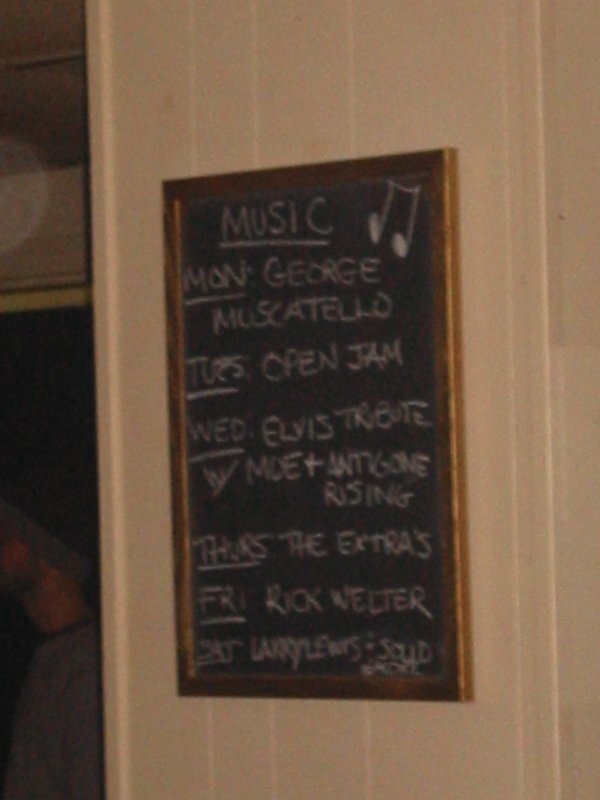 MUSIC
MON: GEORGE
MUSCATELLO
TUES: OPEN JAM
WED: ELVIS TRIBUTE
W/ MOE + ANTIGONE
RISING
THURS THE EXTRA'S
FRI RICK WELTER
SAT LARRY LEWIS + SOLID